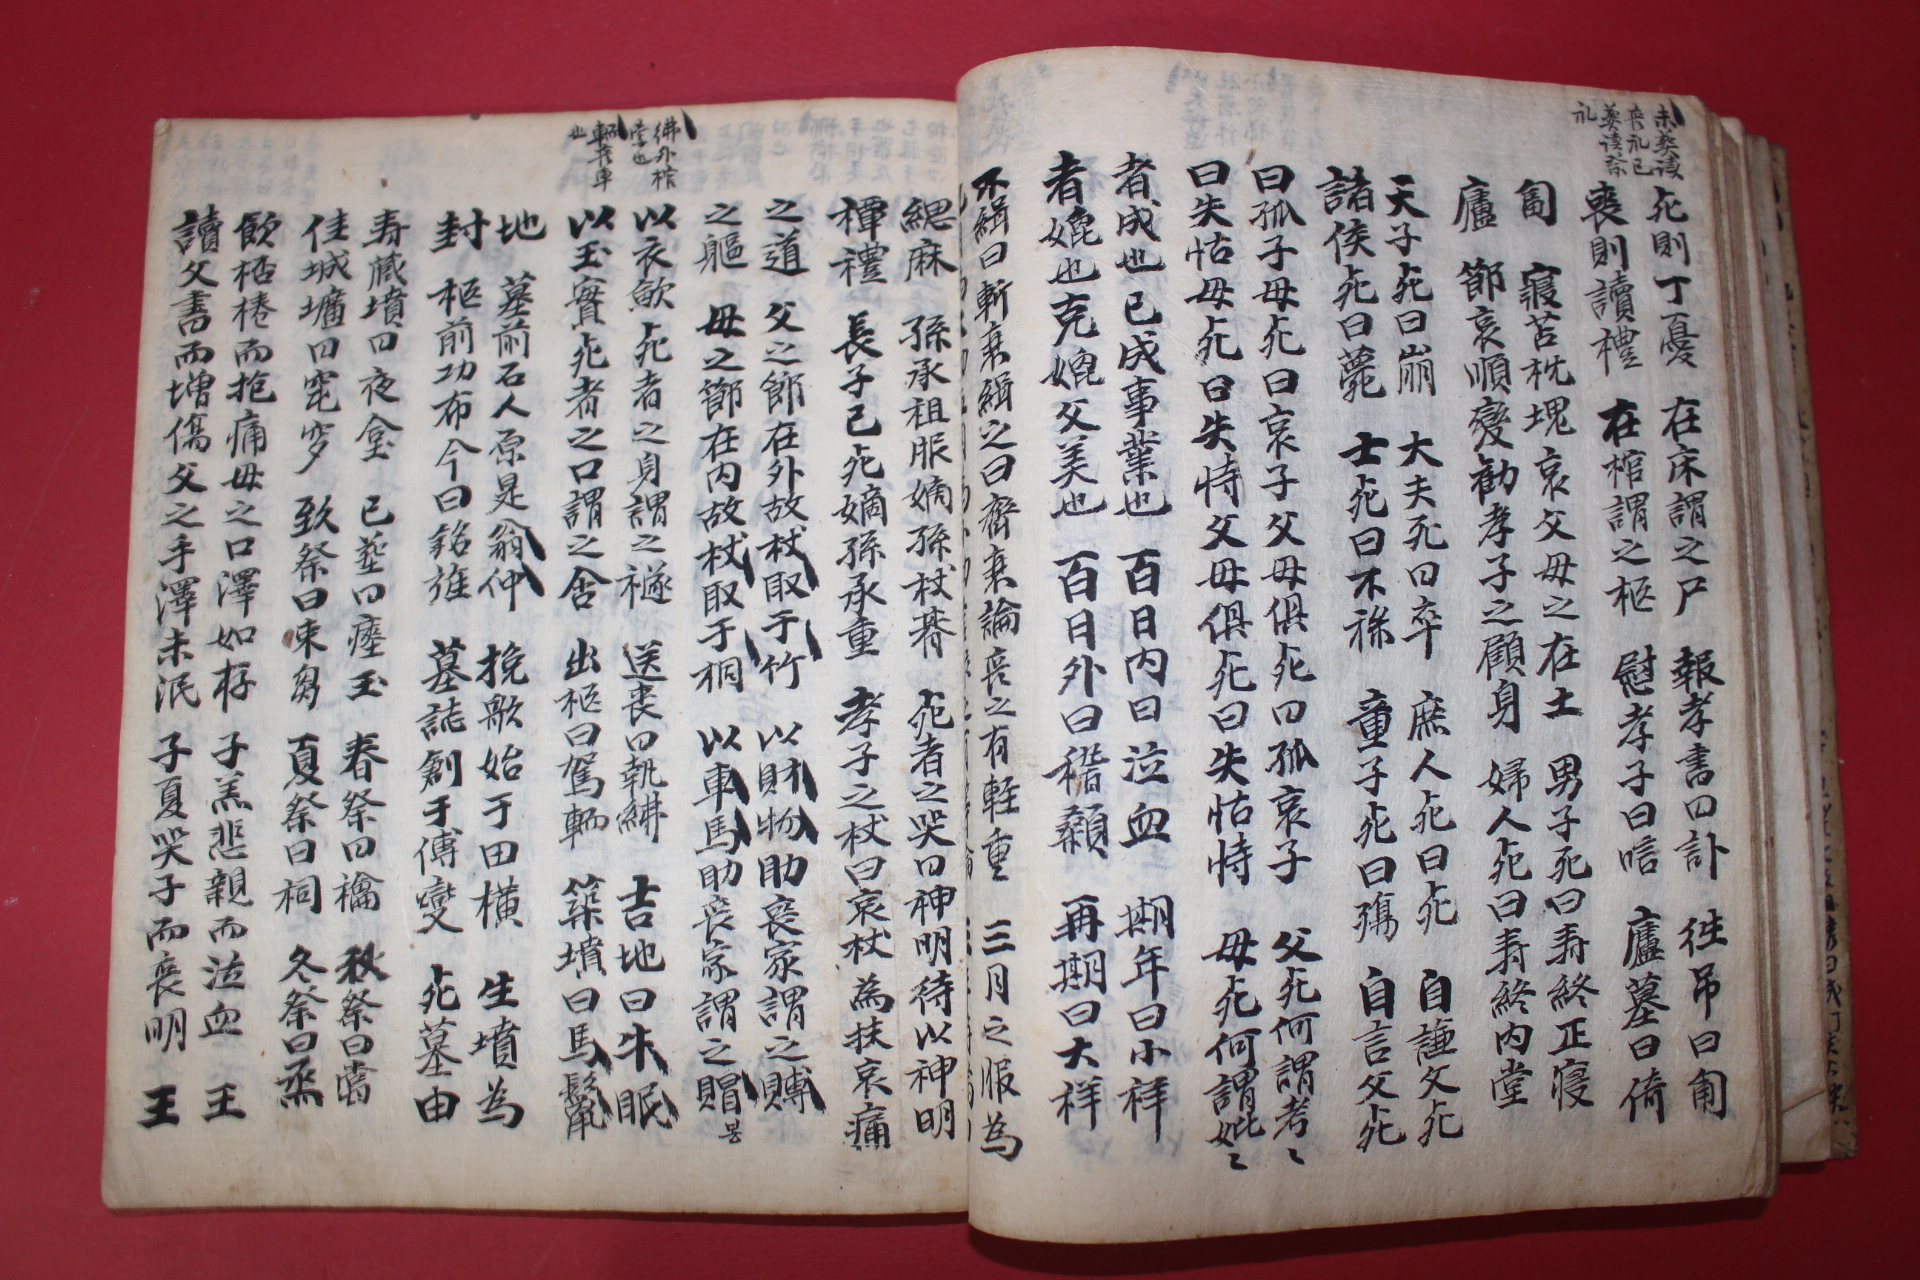 未葬讀
喪礼已
葬讀祭
礼
死則丁憂 在床謂之尸 報孝書曰訃 往吊曰匍
喪則讀禮 在棺謂之柩 慰孝子曰唁 廬墓曰倚
匐 寢苫枕塊哀父母之在土 男子死曰寿終正寢
廬 節哀順變勸孝子之顧身 婦人死曰寿終內堂
天子死曰崩 大夫死曰卒 庶人死曰死 自謙父死
諸侯死曰薨 士死曰不祿 童子死曰殤 自言父死
曰孤子母死曰哀子父母俱死曰孤哀子 父死何謂考〻
曰失怙母死曰失恃父母俱死曰失怙恃 母死何謂妣〻
者成也已成事業也 百日內曰泣血 期年曰小祥
者媲也克媲父美也 百日外曰稽顙 再期曰大祥
不緝曰斬衰緝之曰齊衰論喪之有輕重 三月之服為
緦麻 孫承祖服嫡孫杖朞 死者之哭曰神明待以神明
禫禮 長子已死嫡孫承重 孝子之杖曰哀杖為扶哀痛
之道 父之節在外故杖取于竹 以財物助喪家謂之賻
之軀 母之節在內故杖取于桐 以車馬助喪家謂之賵
以衣歛死者之身謂之襚 送喪曰執紼 吉地曰牛眠
紼外棺
堂也
輀喪車
也
以玉實死者之口謂之含 出柩曰駕輀 築墳曰馬鬛
地 墓前石人原是翁仲 挽歌始于田橫 生墳為
封 柩前功布今曰銘旌 墓誌創于傅變 死墓由
寿藏墳曰夜臺 已葬曰瘞玉 春祭曰禴 秋祭曰嘗
佳城壙曰窀穸 致祭曰束芻 夏祭曰祠 冬祭曰烝
飲桮棬而抱痛母之口澤如存 子羔悲親而泣血 王
讀父書而增傷父之手澤未泯 子夏哭子而喪明 王